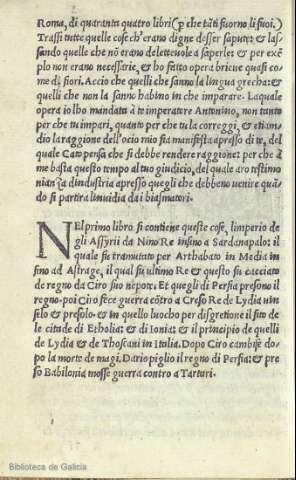 Roma, di quaranta quatro libri (ꝑ che tāti fuorno li suoi.)
Trassi tutte quelle cose ch'erano digne desser sapute: & las-
sando quelle che nō erano deletteuole a saperle: & per exē
plo non erano necessarie, & ho fatto opera brieue quasi co=
me di fiori. Accio che quelli che sanno la lingua grecha: &
quelli che non la sanno habino in che imparare. Laquale
opera io lho mandata à te imperatore Antonino, non tanto
per che tu impari, quanto per che tu la correggi, & etiam
dio la raggione dell'ocio mio sia manifesta apresso di te, del
quale Cato pensa che si debbe rendere raggione: per che à
me basta questo tempo al tuo giudicio, del quale aro testimo
nianza dindustria apresso quegli che debbeno uenire quā-
do si partira linuidia da i biasmatori.
NEl primo libro si contiene queste cose, limperio de
gli Assyrii da Nino Re insino a Sardanapalo: il
quale fu tramutato per Arthabato in Media in
fino ad Astrage, il qual fu ultimo Re & questo fu cacciato
de regno da Ciro suo nepote. Et quegli di Persia presono il
regno. poi Ciro fece guerra cōtro a Creso Re de Lydia uin
selo & preselo. & in quello luocho per disgretione il sito de
le citade di Etholia: & di Ionia: & il principio de quelli
de Lydia & de Thoscani in Italia. Dopo Ciro cambise do
po la morte de magi. Dario piglio il regno di Persia: & pre
so Babilonia mosse guerra contro a Tartari.
Biblioteca de Galicia